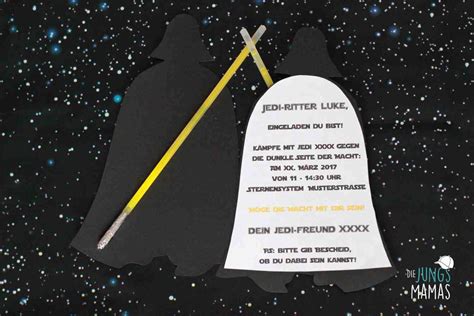 JEDI-RITTER LUKE,
EINGELADEN DU BIST!
KÄMPFE MIT JEDI XXXX GEGEN
DIE DUNKLE SEITE DER MACHT:
AM XX. MÄRZ 2017
VON 11 - 14:30 UHR
STERNENSYSTEM MUSTERSTRASSE
MÖGE DIE MACHT MIT DIR SEIN!
DEIN JEDI-FREUND XXXX
P.S: BITTE GIB BESCHEID,
OB DU DABEI SEIN KANNST!
DIE JUNGS
MAMAS